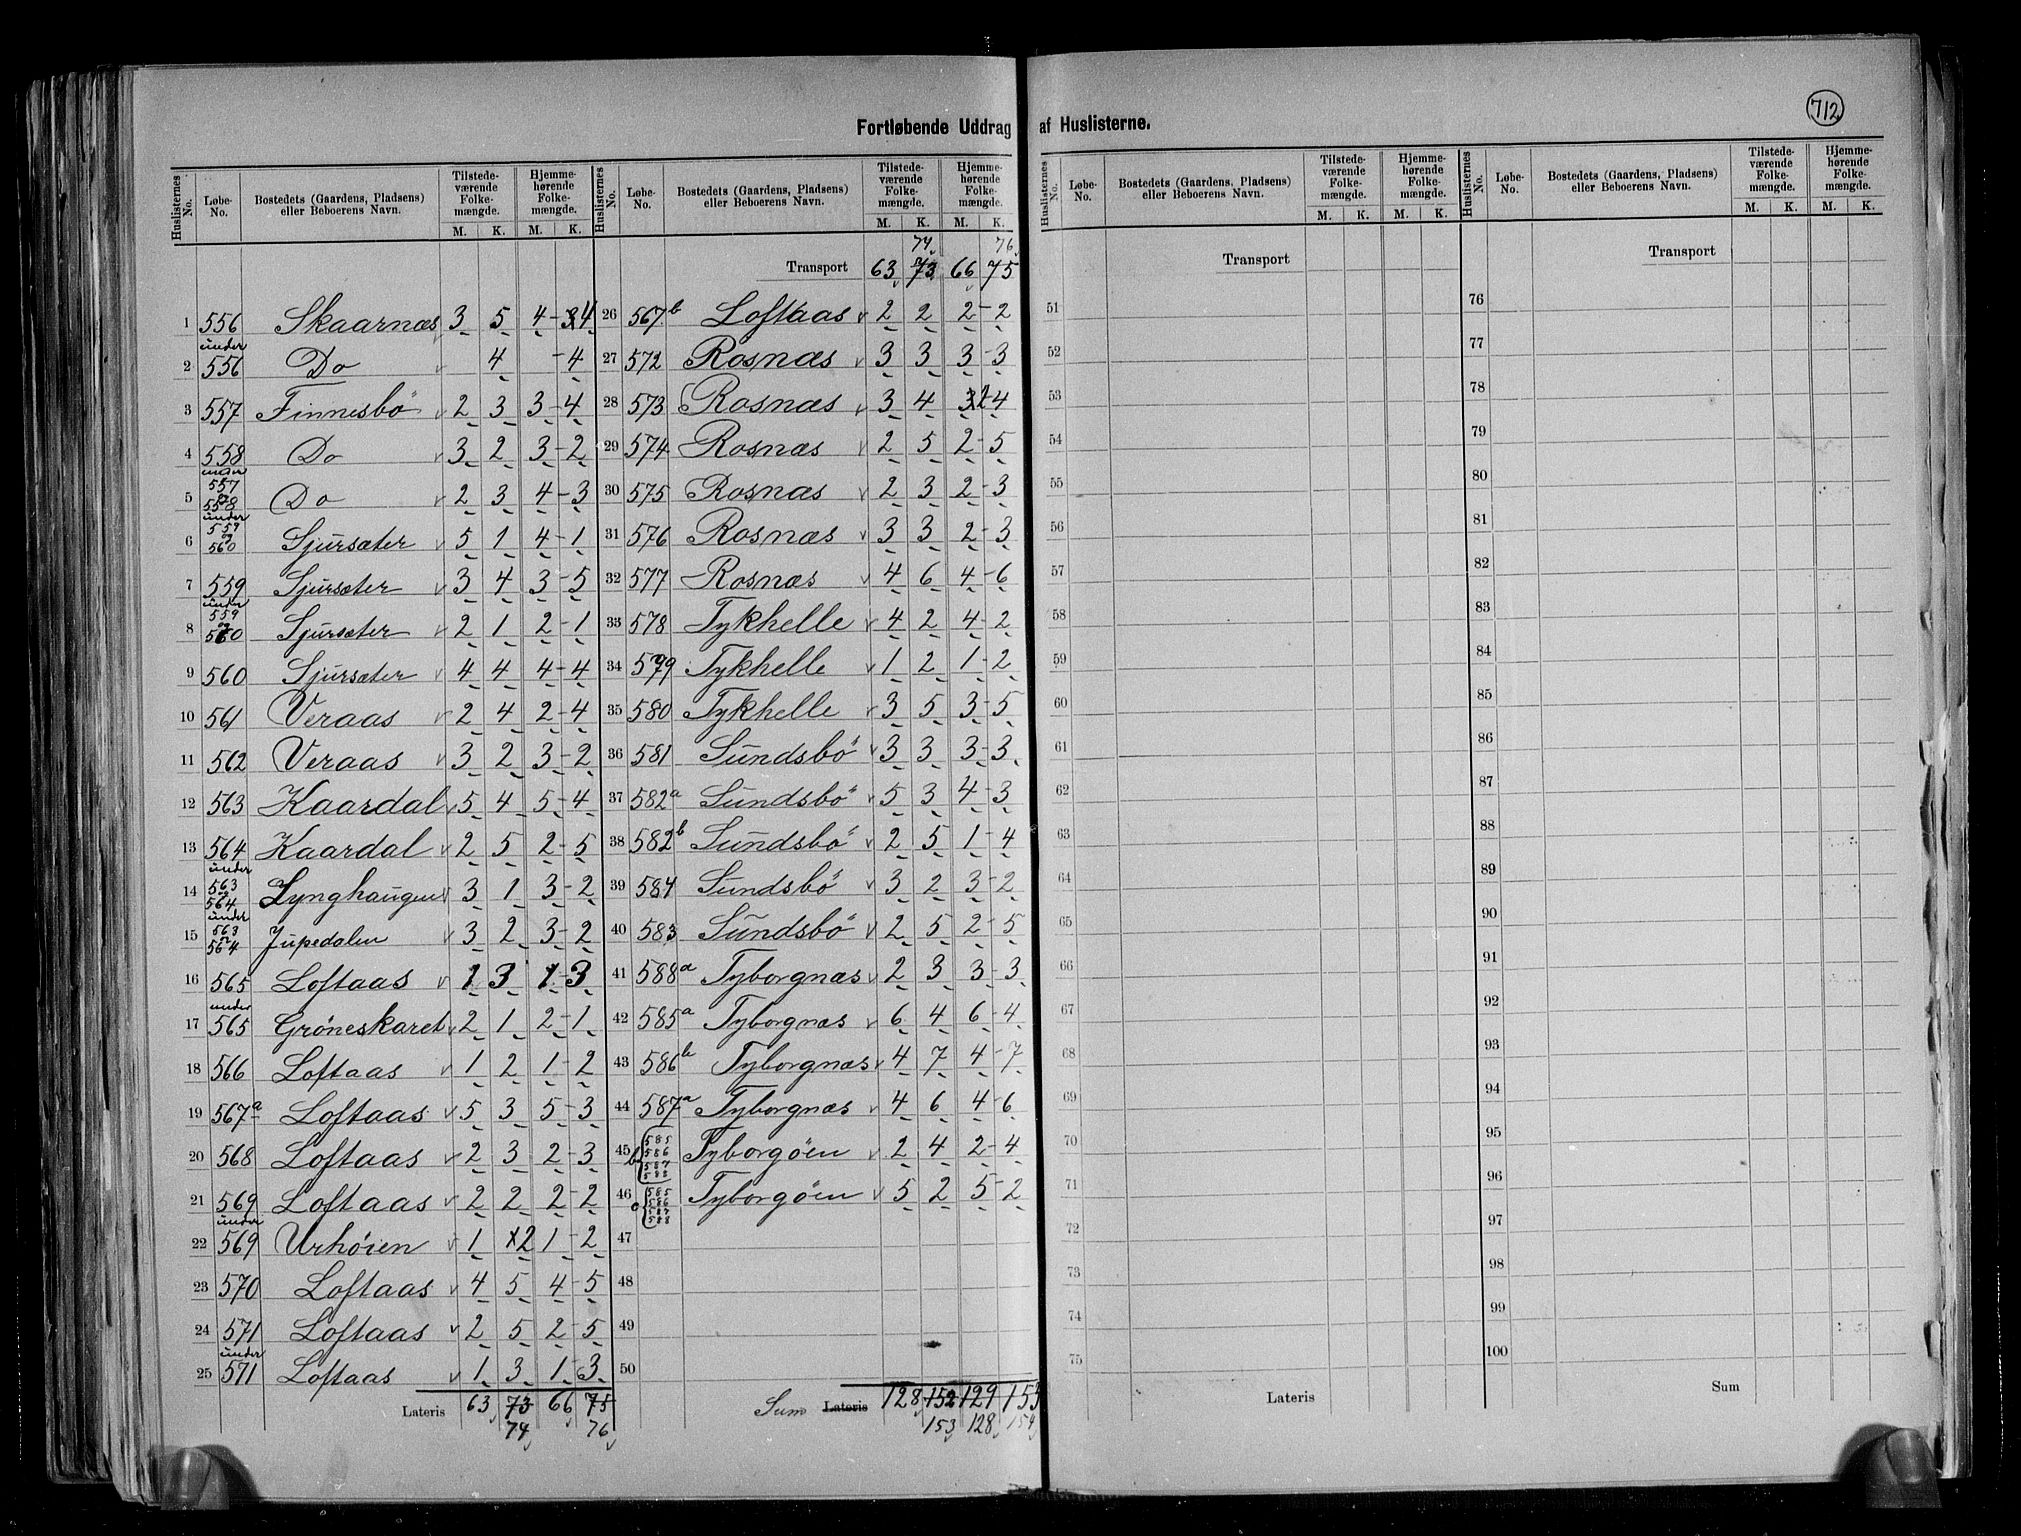 712
Fortløbende Uddrag af Huslisterne.
Huslisternes No. Løbe-No. Bostedets (Gaardens, Pladsens) eller Beboerens Navn. Tilstede-værende Folke-mængde. M. K. Hjemme-hørende Folke-mængde. M. K.
1 556 Skaarnæs 3 5 4 - 3 4
2 under 556 Do 4 - 4
3 557 Finnesbö 2 3 3 - 4
4 558 Do 3 2 3 - 2
5 under 557 og 558 Do 2 3 4 - 3
6 under 559 og 560 Sjursæter 5 1 4 - 1
7 559 Sjursæter 3 4 3 - 5
8 under 559 og 560 Sjursæter 2 1 2 - 1
9 560 Sjursæter 4 4 4 - 4
10 561 Veraas 2 4 2 - 4
11 562 Veraas 3 2 3 - 2
12 563 Kaardal 5 4 5 - 4
13 564 Kaardal 2 5 2 - 5
14 under 563 og 564 Lynghaugen 3 1 3 - 2
15 under 563 og 564 Jupedalen 3 2 3 - 2
16 565 Loftaas 1 3 1 - 3
17 under 565 Gröneskaret 2 1 2 - 1
18 566 Loftaas 1 2 1 - 2
19 567a Loftaas 5 3 5 - 3
20 568 Loftaas 2 3 2 - 3
21 569 Loftaas 2 2 2 - 2
22 under 569 Urhöien 1 2 1 - 2
23 570 Loftaas 4 5 4 - 5
24 571 Loftaas 2 5 2 - 5
25 under 571 Loftaas 1 3 1 - 3
Lateris 63 73 66 75
74 76
Huslisternes No. Løbe-No. Bostedets (Gaardens, Pladsens) eller Beboerens Navn. Tilstede-værende Folke-mængde. M. K. Hjemme-hørende Folke-mængde. M. K.
74 76
Transport 63 73 66 75
26 567b Loftaas 2 2 2 - 2
27 572 Rosnæs 3 3 3 - 3
28 573 Rosnæs 3 4 3 2 - 4
29 574 Rosnæs 2 5 2 - 5
30 575 Rosnæs 2 3 2 - 3
31 576 Rosnæs 3 3 2 - 3
32 577 Rosnæs 4 6 4 - 6
33 578 Tykhelle 4 2 4 - 2
34 579 Tykhelle 1 2 1 - 2
35 580 Tykhelle 3 5 3 - 5
36 581 Sundsbö 3 3 3 - 3
37 582a Sundsbö 5 3 4 - 3
38 582b Sundsbö 2 5 1 - 4
39 584 Sundsbö 3 2 3 - 2
40 583 Sundsbö 2 5 2 - 5
41 588a Tyborgnæs 2 3 3 - 3
42 585a Tyborgnæs 6 4 6 - 4
43 586b Tyborgnæs 4 7 4 - 7
44 587a Tyborgnæs 4 6 4 - 6
45 b 585 586 587 588 Tyborgöen 2 4 2 - 4
46 c 585 586 587 588 Tyborgöen 5 2 5 - 2
47
48
49
50
Sum Lateris 128 152 129 153
153 128 154
Huslisternes No. Løbe-No. Bostedets (Gaardens, Pladsens) eller Beboerens Navn. Tilstede-værende Folke-mængde. M. K. Hjemme-hørende Folke-mængde. M. K.
Transport
51
52
53
54
55
56
57
58
59
60
61
62
63
64
65
66
67
68
69
70
71
72
73
74
75
Lateris
Huslisternes No. Løbe-No. Bostedets (Gaardens, Pladsens) eller Beboerens Navn. Tilstede-værende Folke-mængde. M. K. Hjemme-hørende Folke-mængde. M. K.
Transport
76
77
78
79
80
81
82
83
84
85
86
87
88
89
90
91
92
93
94
95
96
97
98
99
100
Sum